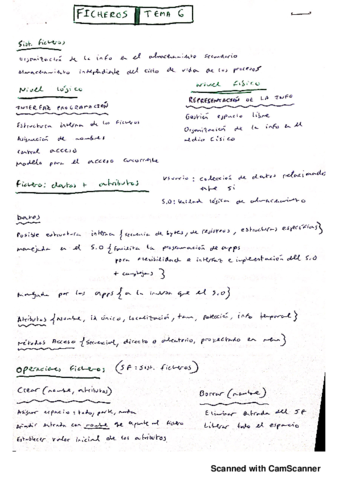 FICHEROS | TEMA 6
Sist. ficheros
Organización de la info en el almacenamiento secundario
Almacenamiento independiente del ciclo de vida de los procesos
Nivel lógico
Nivel físico
INTERFAZ PROGRAMACIÓN
REPRESENTACIÓN DE LA INFO
Estructura interna de los ficheros
Gestión espacio libre
Asignación de nombres
Organización de la info en el medio físico
Control acceso
Modelo para el acceso concurrente
Fichero: datos + atributos
Usuario: colección de datos relacionados entre sí
S.O: Unidad lógica de almacenamiento
Datos
Posible estructura interna {secuencia de bytes, de registros, estructuras específicas}
manejada en el S.O {facilita la programación de apps
pero flexibilidad e interfaz e implementación del S.O
+ complejas}
Manejada por las apps {a la inversa que el S.O}
Atributos {Nombre, id único, localización, tam, protección, info temporal}
Métodos Acceso {Secuencial, directo o aleatorio, proyectado en mem}
Operaciones Ficheros (SF: Sist. ficheros)
Crear (nombre, atributos)
Borrar (nombre)
Asignar espacio: todo, parte, nada
Eliminar entrada del SF
Añadir entrada con nombre que apunte al fichero
Liberar todo el espacio
Establecer valor inicial de los atributos
Scanned with CamScanner